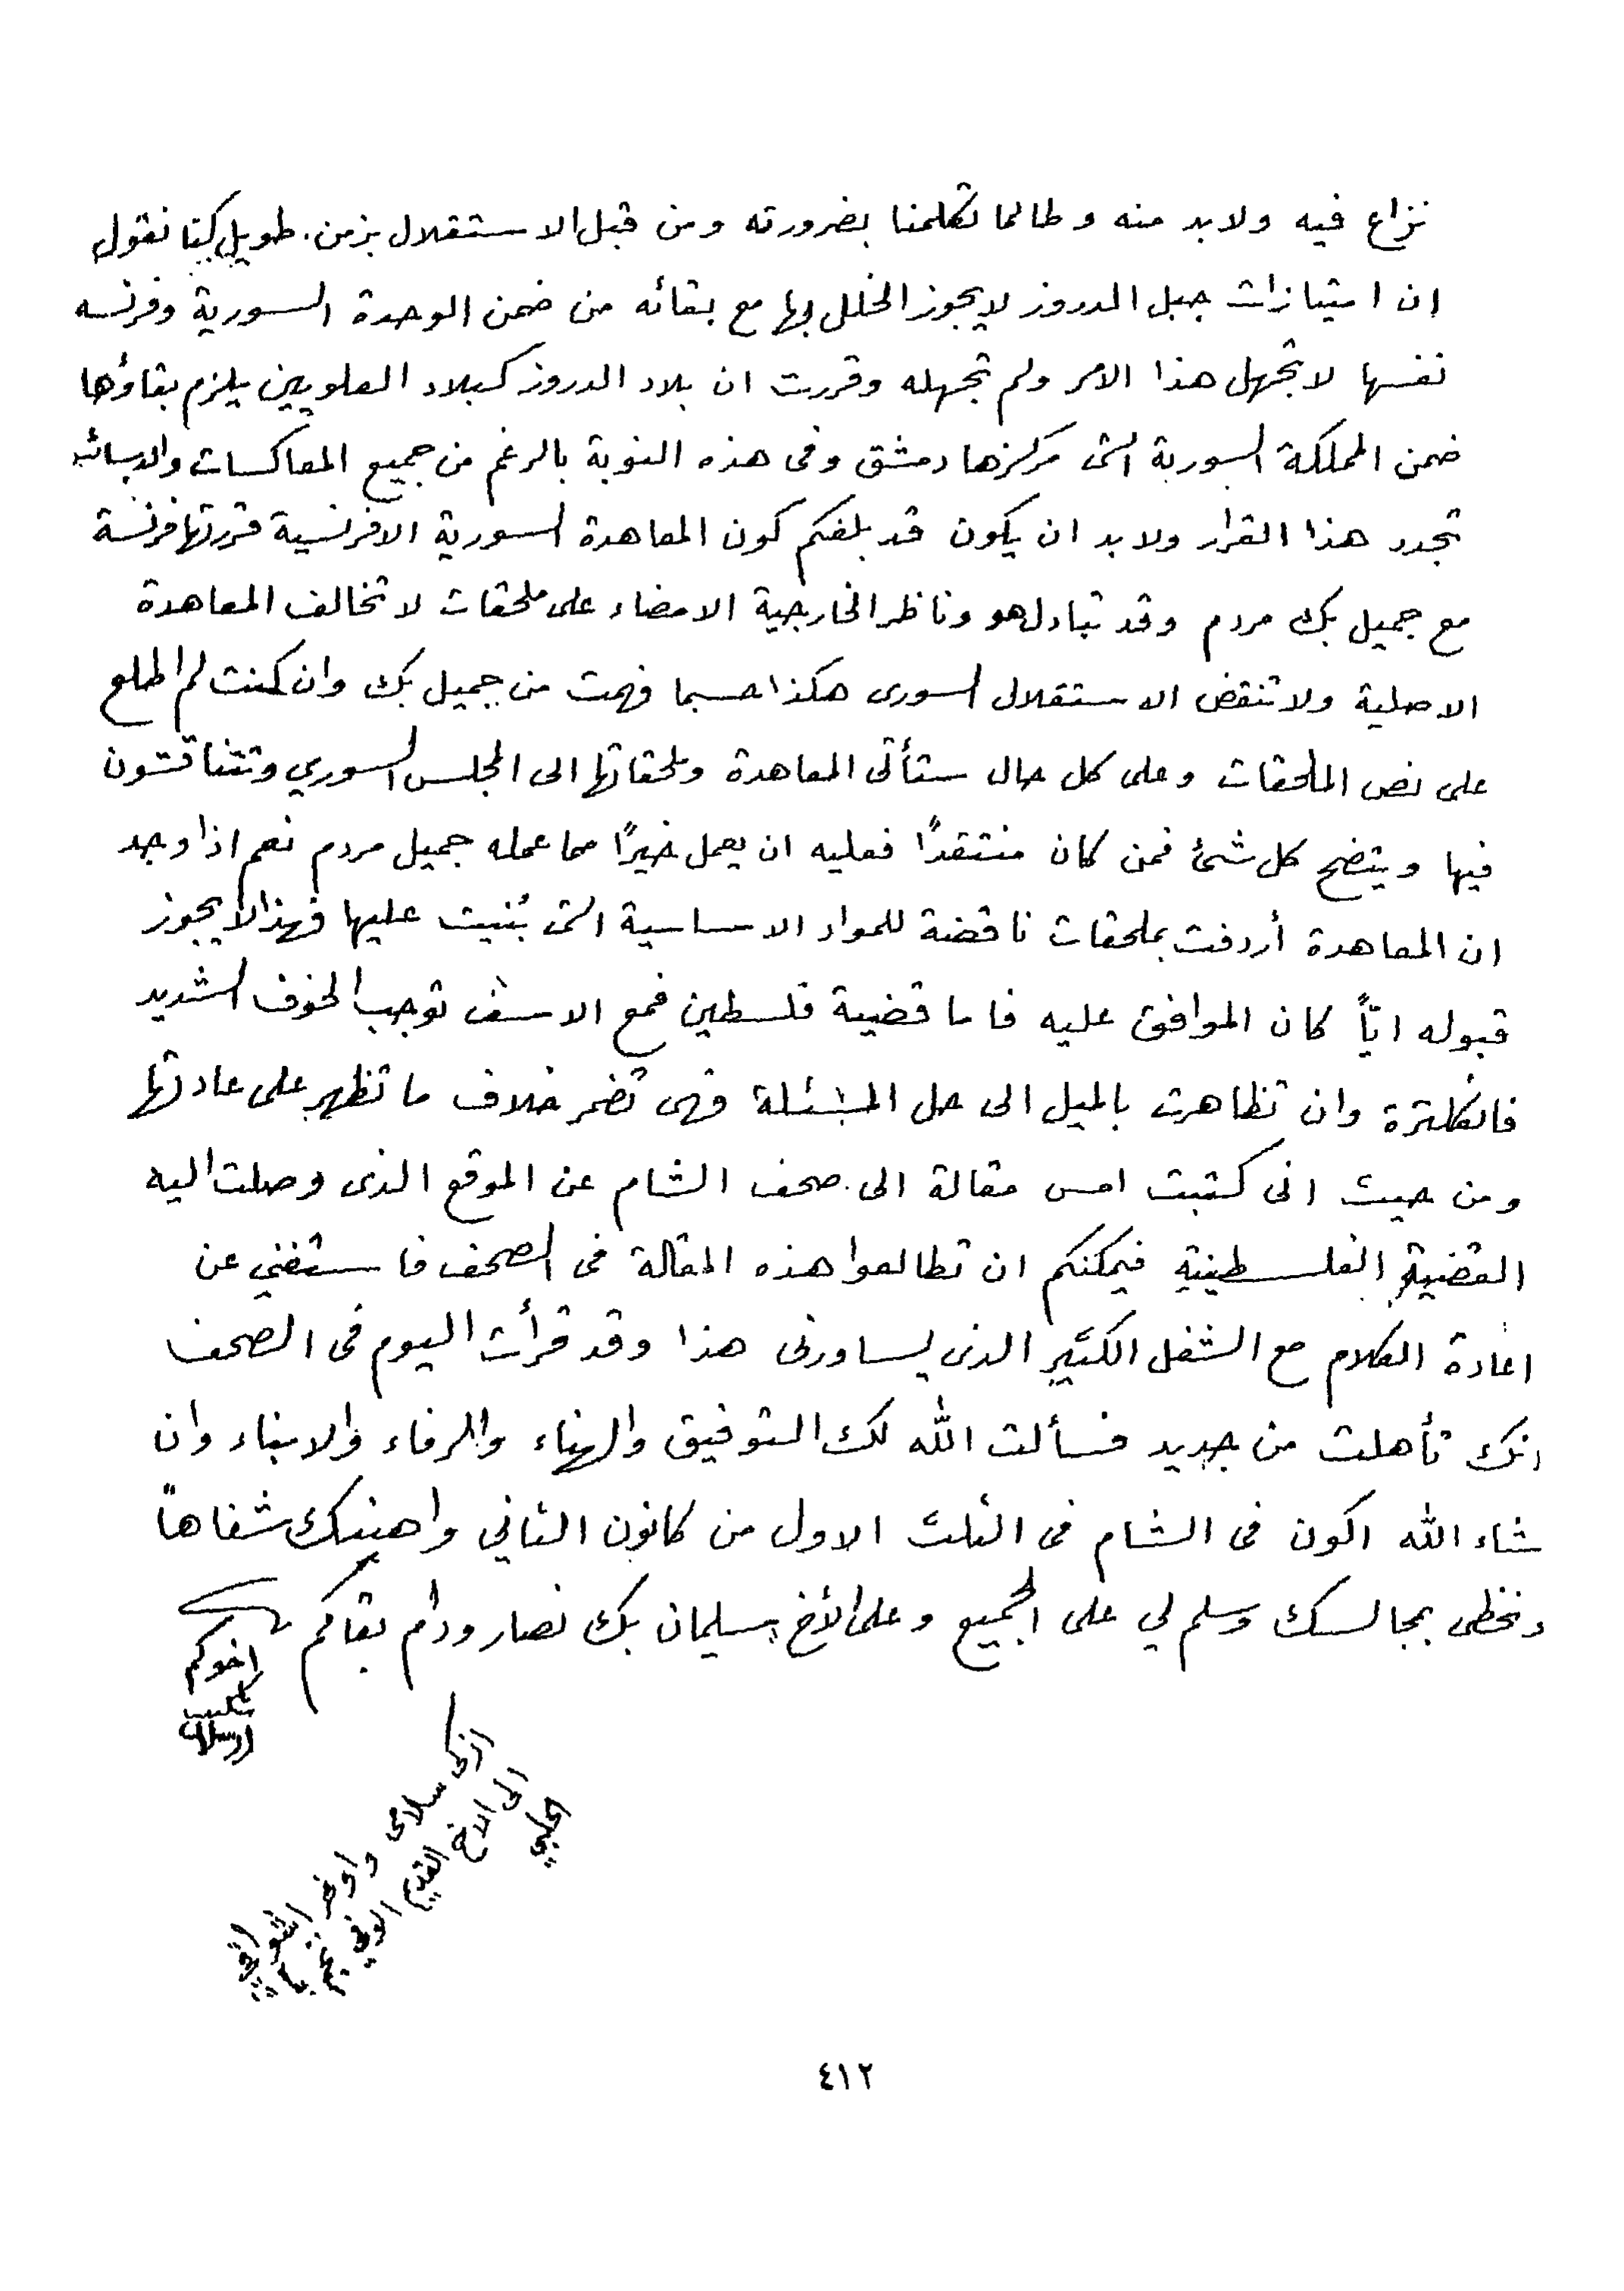 نزاع فيه ولابد منه وطالما تكلمنا بضرورته ومن قبل الاستقلال بزمن طويل كنا نقول
ان امتيازات جبل الدروز لايجوز الخلل بها مع بقائه من ضمن الوحدة السورية وفرنسه
نفسها لا تجهل هذا الامر ولم تجهله وقررت ان بلاد الدروز كبلاد العلويين يلزم بقاؤها
ضمن المملكة السورية التى مركزها دمشق وفى هذه النوبة بالرغم من جميع المعاكسات والدسائس
تجدد هذا القرار ولا بد ان يكون قد بلغكم كون المعاهدة السورية الافرنسية قررتها فرنسة
مع جميل بك مردم وقد تبادل هو وناظر الخارجية الامضاء على ملحقات لا تخالف المعاهدة
الاصلية ولا تنقض الاستقلال السورى هكذا حسبما فهمت من جميل بك وان كنت لم اطلع
على نص الملحقات وعلى كل حال ستأتى المعاهدة وملحقاتها الى المجلس السوري وتتناقشون
فيها ويتضح كل شئ فمن كان منتقدًا فعليه ان يعمل خيرًا مما عمله جميل مردم نعم اذا وجد
ان المعاهدة أردفت بملحقات ناقضة للمواد الاساسية التى بُنيت عليها فهذا لا يجوز
قبوله ايًّا كان الموافق عليه فاما قضية فلسطين فمع الاسف توجب الخوف الشديد
فانكلترة وان تظاهرت بالميل الى حل المسئلة فهى تضمر خلاف ما تظهر على عادتها
ومن حيث انى كتبت امس مقالة الى صحف الشام عن الموقع الذى وصلت اليه
القضية الفلسطينية فيمكنكم ان تطالعوا هذه المقالة فى الصحف فاستغني عن
اعادة الكلام مع الشغل الكثير الذى يساورنى هذا وقد قرأت اليوم فى الصحف
انك تأهلت من جديد فسألت الله لك التوفيق والهناء والرفاء والابناء وان
شاء الله اكون فى الشام فى الثلث الاول من كانون الثاني واهنئك شفاهاً
ونحظى بمجالسك وسلم لي على الجميع وعلى الأخ سليمان بك نصار ودام بقاكم
اخوكم
شكيب
ارسلان
ازكى سلامى واوفر اشواقي
الى الاخ القديم الوفي نجم باشا
الحلبي
٤١٢